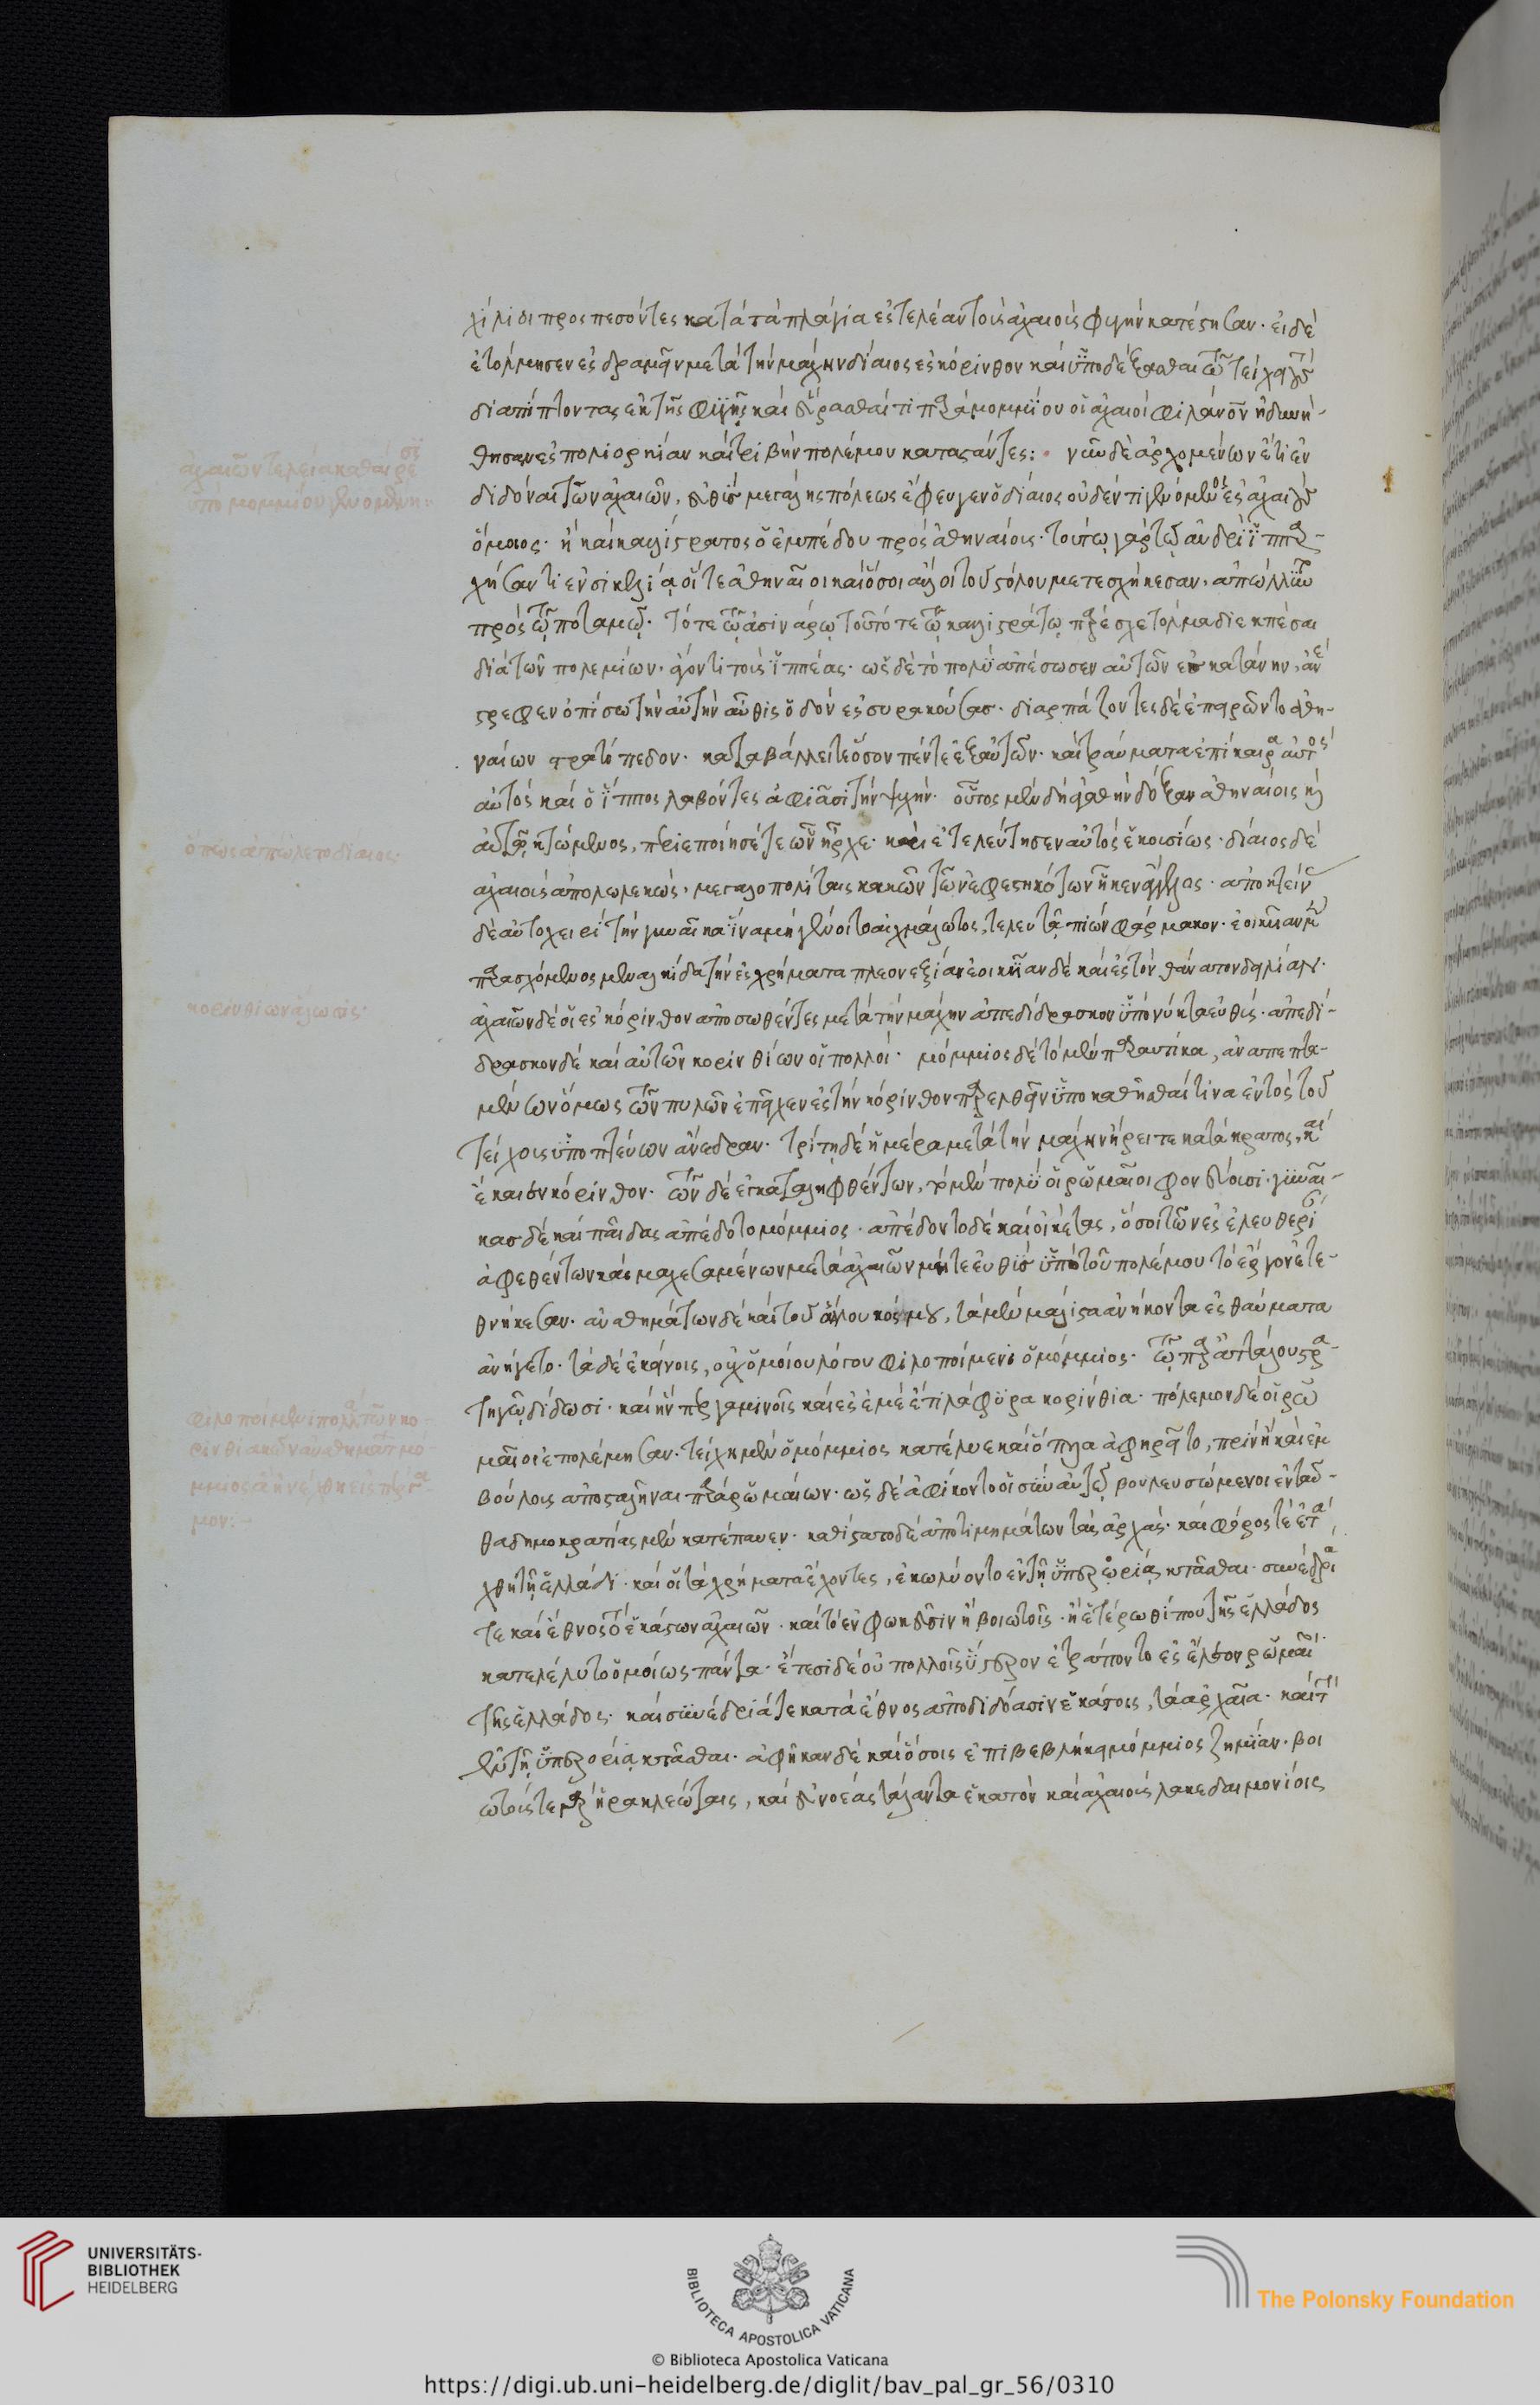 χίλιοι προσπεσόντες κατὰ τὰ πλάγια ἐς τελέαν τοὺς ἀχαιοὺς φυγὴν κατέστησαν. εἰ δὲ
ἐτόλμησεν ἐσδραμεῖν μετὰ τὴν μάχην δίαιος ἐς κόρινθον καὶ ὑποδέξασθαι τῷ τείχει τοὺς
διαπίπτοντας ἐκ τῆς φυγῆς καὶ εὕρασθαί τι παρὰ μομμίου οἱ ἀχαιοὶ φιλάνον ἠδυνή-
θησαν ἐς πολιορκίαν καὶ τριβὴν πολέμου καταστάντες: νῦν δὲ ἀρχομένων ἔτι ἐν
διδόναι τῶν ἀχαιῶν, εὐθὺς μεγάλης πόλεως ἔφευγεν ὁ δίαιος οὐδέν τι γενόμενος ἐς ἀχαιοὺς
ὅμοιος. ἢ καὶ καλλίστρατος ὁ ἐμπέδου πρὸς ἀθηναίοις. τούτῳ γὰρ τῷ ἀνδρὶ ἱππαρ-
χήσαντι ἐν σικελίᾳ οἵ τε ἀθηναῖοι καὶ ὅσοι ἄλλοι τοῦ στόλου μετεσχήκεσαν, ἀπώλλυντο
πρὸς τῷ ποταμῷ. τότε τῷ ἀσινάρῳ τοῦτότε τῷ καλλιστράτῳ παρέσχε τόλμα διεκπέσαι
διὰ τῶν πολεμίων. ἄγοντι τοὺς ἱππέας. ὡς δὲ τὸ πολὺ ἀπέσωσεν αὐτῶν ἐς κατάνην, ἀνέ
στρεφεν ὀπίσω τὴν αὐτὴν αὖθις ὁδὸν ἐς συρακούσας. διαρπάζοντες δὲ ἐπαρῶντο ἀθη-
ναίων στρατόπεδον. καταβάλλει τε ὅσον πέντε ἐξ αὐτῶν. καὶ τραύματα ἐπίκαιρα αὐτὸς
αὐτὸς καὶ ὁ ἵππος λαβόντες ἀφιᾶσι τὴν ψυχήν. οὗτος μὲν δὴ ἀγαθὴν δόξαν ἀθηναίοις καὶ
αὑτῷ κτώμενος, περιεποίησέ τε ὧν ἦρχε. καὶ ἐτελεύτησεν αὐτὸς ἑκουσίως. δίαιος δὲ
ἀχαιοὺς ἀπολωλεκὼς, μεγαλοπολίταις κακῶν τῶν ἐφεστηκότων ἧκεν ἄγγελος. ἀποκτείνας
δὲ αὐτοχειρὶ τὴν γυναῖκα ἵνα μὴ γένοιτο αἰχμάλωτος, τελευτᾷ πιὼν φάρμακον. ἐοικυῖαν μὲν
παρασχόμενος μεναλκίδᾳ τὴν ἐς χρήματα πλεονεξίαν ἐοικυῖαν δὲ καὶ ἐς τὸν θάνατον δειλίαν.
ἀχαιῶν δὲ οἱ ἐς κόρινθον ἀποσωθέντες μετὰ τὴν μάχην ἀπεδίδρασκον ὑπὸ νύκτα εὐθύς. ἀπεδί-
δρασκον δὲ καὶ αὐτῶν κορινθίων οἱ πολλοί. μόμμιος δὲ τὸ μὲν παραυτίκα, ἀναπεπτα-
μένων ὅμως τῶν πυλῶν ἐπεῖχεν ἐς τὴν κόρινθον παρελθεῖν ὑποκαθῆσθαί τινα ἐντὸς τοῦ
τείχους ὑποπτεύων ἐνέδραν. τρίτῃ δὲ ἡμέρᾳ μετὰ τὴν μάχην ᾕρει τε κατὰ κράτος, καὶ
ἔκαιεν κόρινθον. τῶν δὲ ἐγκαταληφθέντων, τὸ μὲν πολὺ οἱ ῥωμαῖοι φονεύουσι. γυναῖ-
κας δὲ καὶ παῖδας ἀπέδοτο μόμμιος. ἀπέδοντο δὲ καὶ οἰκέτας, ὅσοι τῶν ἐς ἐλευθερί
ἀφεθέντων καὶ μαχεσαμένων μετὰ ἀχαιῶν μήτε εὐθὺς ὑπὸ τοῦ πολέμου τὸ ἔργον ἐτε-
θνήκεσαν. ἀναθημάτων δὲ καὶ τοῦ ἄλλου κόσμου, τὰ μὲν μάλιστα ἀνήκοντα ἐς θαῦμα τὰ
ἀνήγετο. τὰ δὲ ἐκείνοις, οὐχ ὁμοίου λόγου φιλοποίμενι ὁ μόμμιος. τῷ παρὰ ἀττάλου στρα-
τηγῷ δίδωσι. καὶ ἦν περγαμηνοῖς καὶ ἐς ἐμὲ ἔτι λάφυρα κορίνθια. πόλεμον δὲ οἳ ῥω
μαῖοι ἐπολέμησαν. τείχη μὲν ὁ μόμμιος κατέλυε καὶ ὅπλα ἀφῃρεῖτο, πρὶν ἢ καὶ ἐμ
βούλους ἀποσταλῆναι παρὰ ῥωμαίων. ὡς δὲ ἀφίκοντο οἱ σὺν αὐτῷ βουλευσόμενοι ἐνταῦ-
θα δημοκρατίας μὲν κατέπαυεν. καθίστατο δὲ ἀπὸ τιμημάτων τὰς ἀρχάς. καὶ φόρος τε ἐτά
χθη τῇ ἑλλάδι. καὶ οἱ τὰ χρήματα ἔχοντες, ἐκωλύοντο ἐν τῇ ὑπερορίᾳ κτᾶσθαι. συνέδρια
τε καὶ ἔθνος τὸ ἑκάστων ἀχαιῶν. καὶ τὸ ἐν φωκεῦσιν ἢ βοιωτοῖς. ἢ ἑτέρωθί που τῆς ἑλλάδος
κατελέλυτο ὁμοίως πάντα. ἔτεσι δὲ οὐ πολλοῖς ὕστερον ἐτράποντο ἐς ἔλεον ῥωμαῖοι
τῆς ἑλλάδος. καὶ συνέδριά τε κατὰ ἔθνος ἀποδιδόασιν ἑκάστοις, τὰ ἀρχαῖα. καὶ τὸ
ἐν τῇ ὑπερορίᾳ κτᾶσθαι. ἀφῆκαν δὲ καὶ ὅσοις ἐπιβεβλήκει μόμμιος ζημίαν. βοι
ωτοῖς τε γὰρ ἡρακλεώταις, καὶ εὐβοεάς τάλαντα ἑκατὸν καὶ ἀχαιοὺς λακεδαιμονίοις
ἀχαιῶν τελεία καθαίρεσις
ὑπὸ μομμίου γενομένη:
ὅπως ἀπώλετο δίαιος.
κορινθίων ἅλωσις.
φιλοποίμενι πολλὰ τῶν κο-
ρινθιακῶν ἀναθημάτων μό-
μμιος
μον:
UNIVERSITÄTS-
BIBLIOTHEK
HEIDELBERG
BIBLIOTECA APOSTOLICA VATICANA
The Polonsky Foundation
© Biblioteca Apostolica Vaticana
https://digi.ub.uni-heidelberg.de/diglit/bav_pal_gr_56/0310